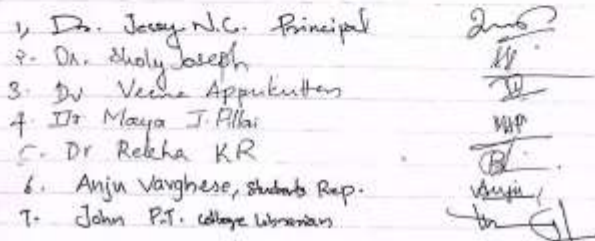 1, Dr. Jessy N.C. Principal
2. Dr. Sholy Joseph
3. Dr Veena Appukuttan
4. Dr Maya J. Pillai
5. Dr Rekha KR
6. Anju Varghese, Students Rep. Anju
7. John P.T. College Librarian